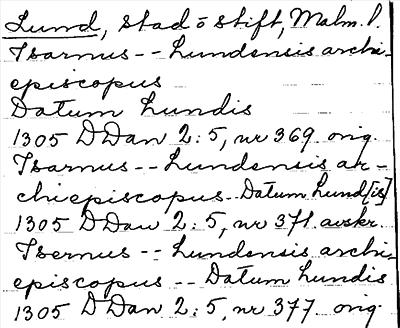 Lund, stad o stift, Malm. l.
Isarnus -- Lundensis archi-
episcopus
Datum Lundis
1305 DDan 2:5, nr 369 orig.
Isarnus -- Lundensis ar-
chiepiscopus Datum Lund[is]
1305 DDan 2:5, nr 371 avskr.
Isernus -- Lundensis archi-
episcopus -- Datum Lundis
1305 DDan 2:5, nr 377 orig.